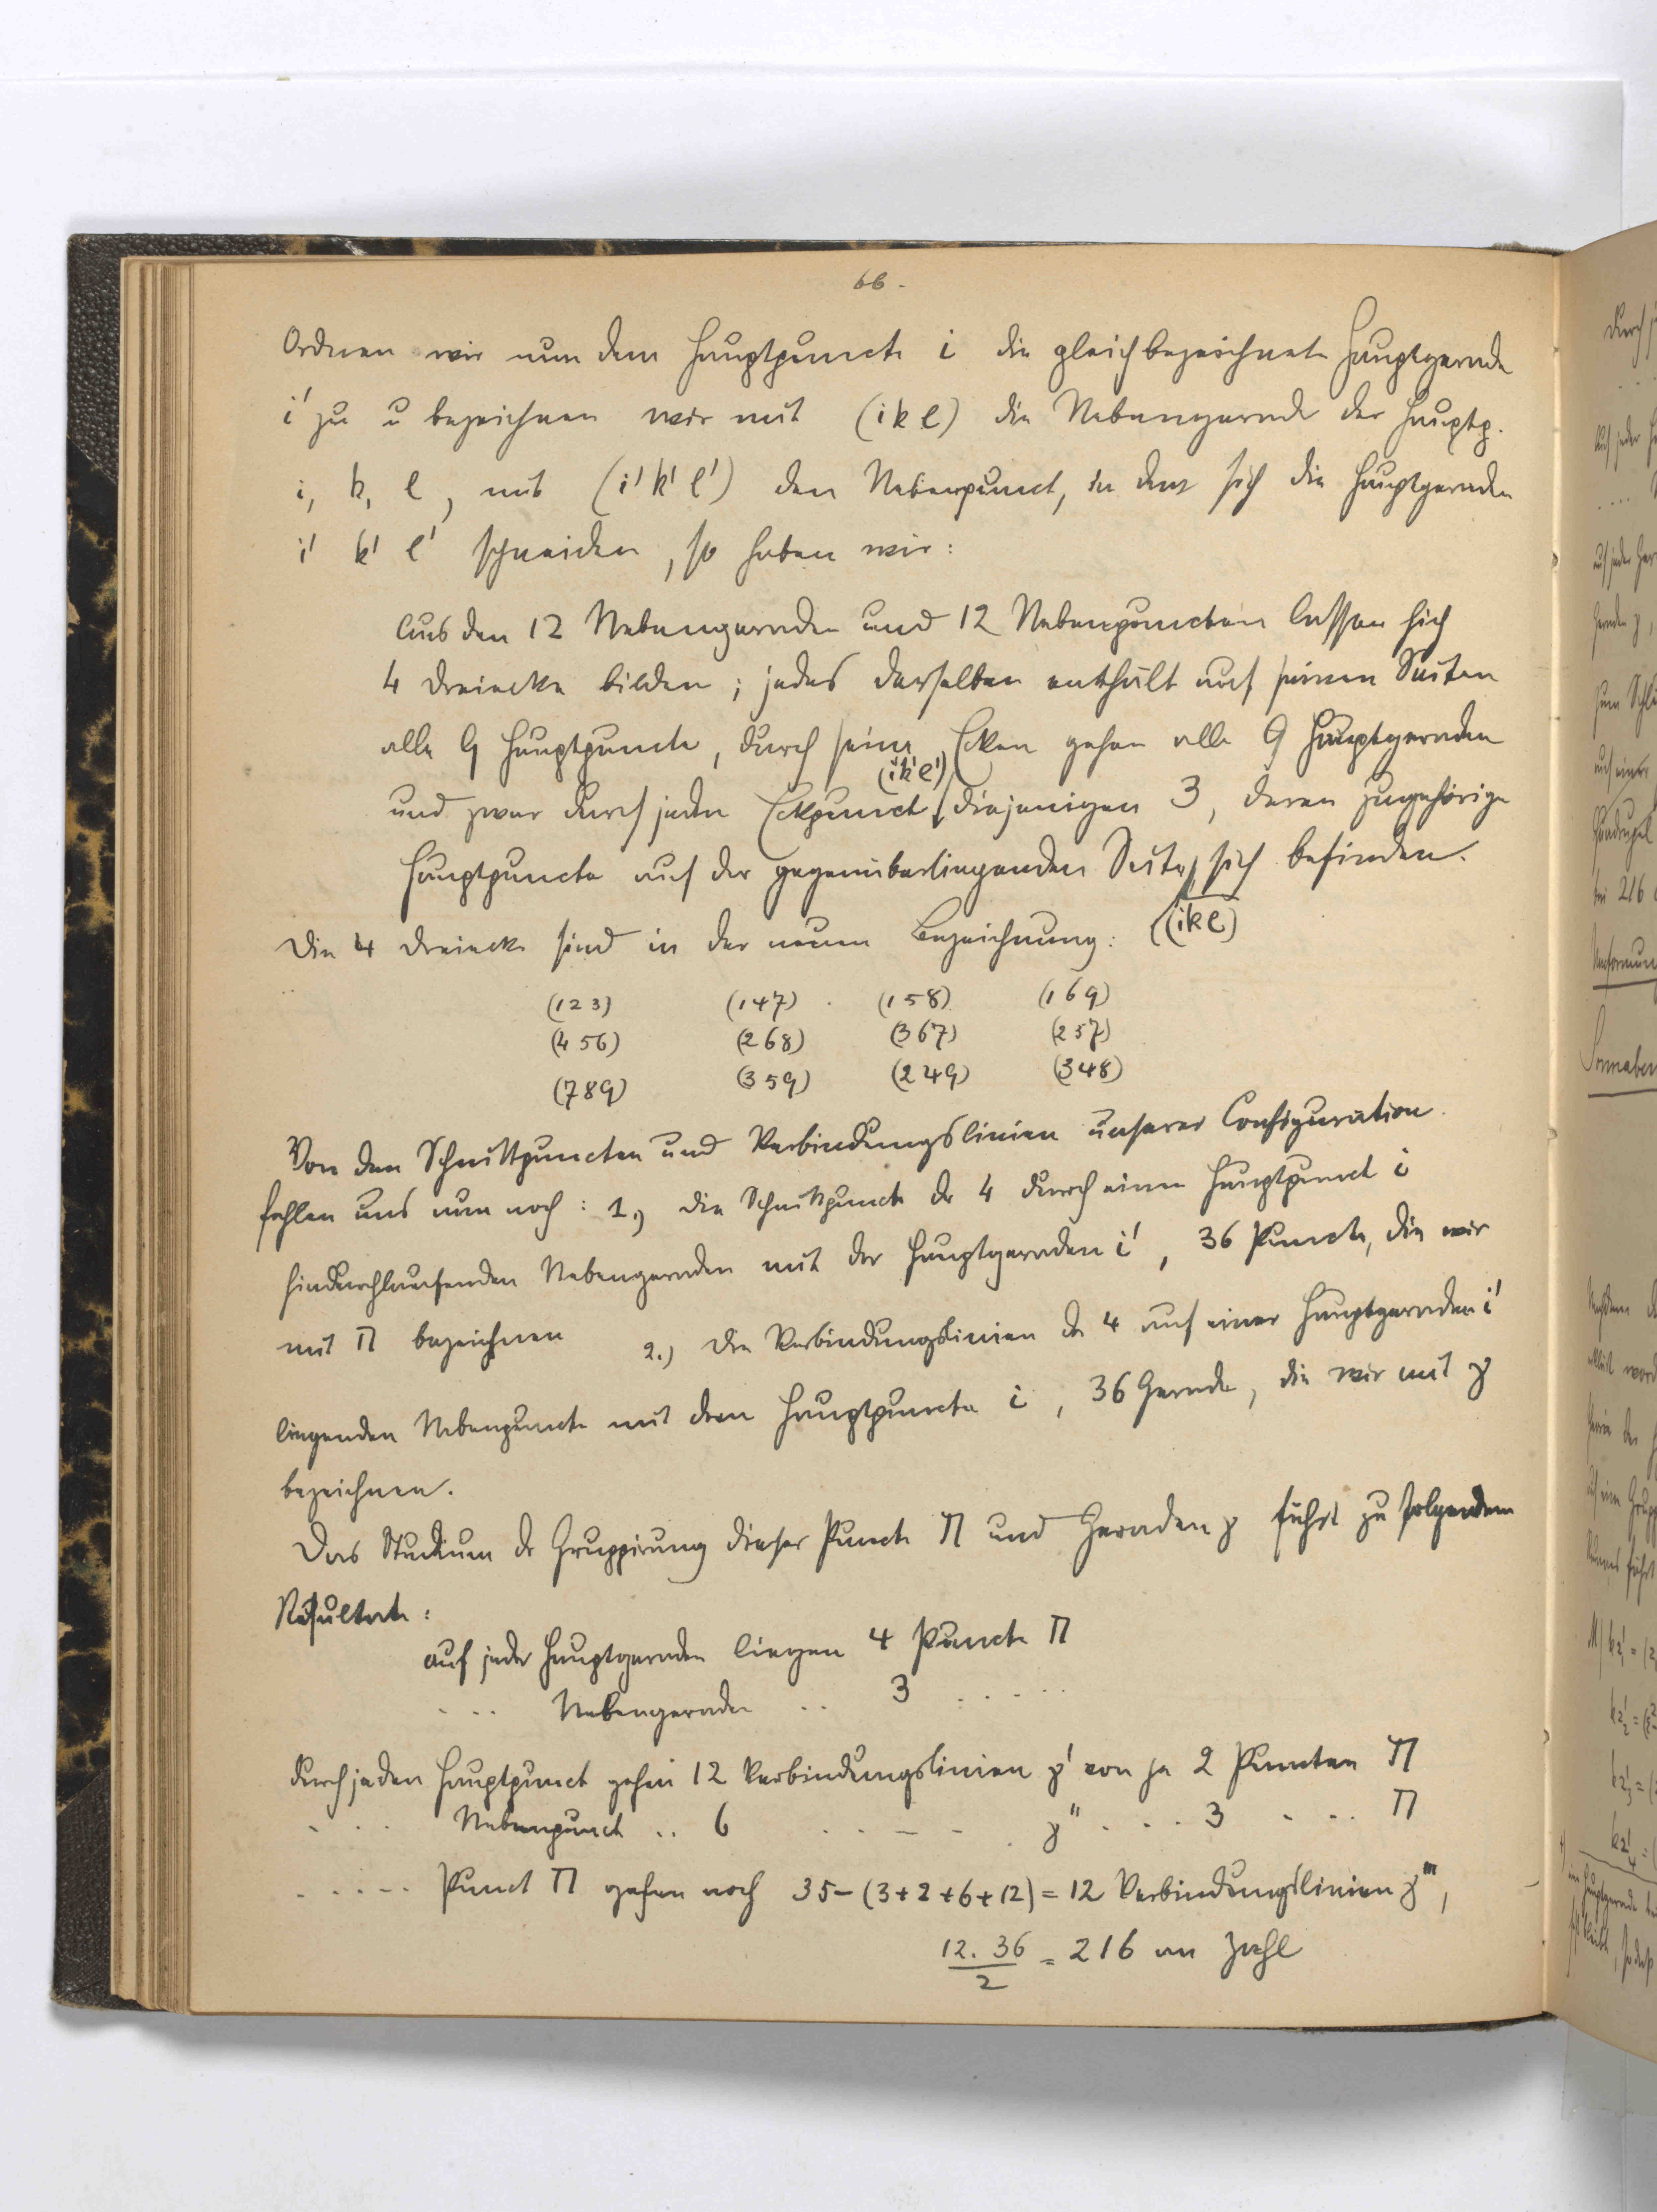 66.
Ordnen wir nun dem Hauptpuncte i die gleichbezeichnete Hauptgerade
i' zu u bezeichnen wir mit (ikl) die Nebengerade der Hauptp.
i, k, l, mit (i'k'l') den Nebenpunct, in dem sich die Hauptgeraden
i' k' l' schneiden, so haben wir:
Aus den 12 Nebengeraden und 12 Nebenpuncten lassen sich
4 Dreiecke bilden; jedes derselben enthält auf seinen Seiten
alle 9 Hauptpuncte, durch seine Ecken gehen alle 9 Hauptgeraden
und zwar durch jeden Eckpunct (i'k'l') diejenigen 3, deren zugehörige
Hauptpuncte auf der gegenüberliegenden Seite (ikl) sich befinden.
Die 4 Dreiecke sind in der neuen Bezeichnung:
(123) (147) (158) (169)
(456) (268) (367) (257)
(789) (359) (249) (348)
Von den Schnittpuncten und Verbindungslinien unserer Configuration
fehlen uns nun noch: 1.) die Schnittpuncte der 4 durch einen Hauptpunct i
hindurchlaufenden Nebengeraden mit der Hauptgeraden i', 36 Puncte, die wir
mit Π bezeichnen 2.) Die Verbindungslinien der 4 auf einer Hauptgeraden i'
liegenden Nebenpuncte mit dem Hauptpuncte i, 36 Gerade, die wir mit γ
bezeichnen.
Das Studium der Gruppirung dieser Puncte Π und Geraden γ führt zu folgendem
Resultate:
auf jeder Hauptgeraden liegen 4 Puncte Π
. . . Nebengeraden . . 3 . . . . .
durch jeden Hauptpunct gehen 12 Verbindungslinien γ' von je 2 Puncten Π
. . . Nebenpunct . . 6 . . . . . γ'' . . . 3 . . . Π
. . . . . Punct Π gehen noch 35-(3+2+6+12)=12 Verbindungslinien γ''',
12.36/2 = 216 an Zahl